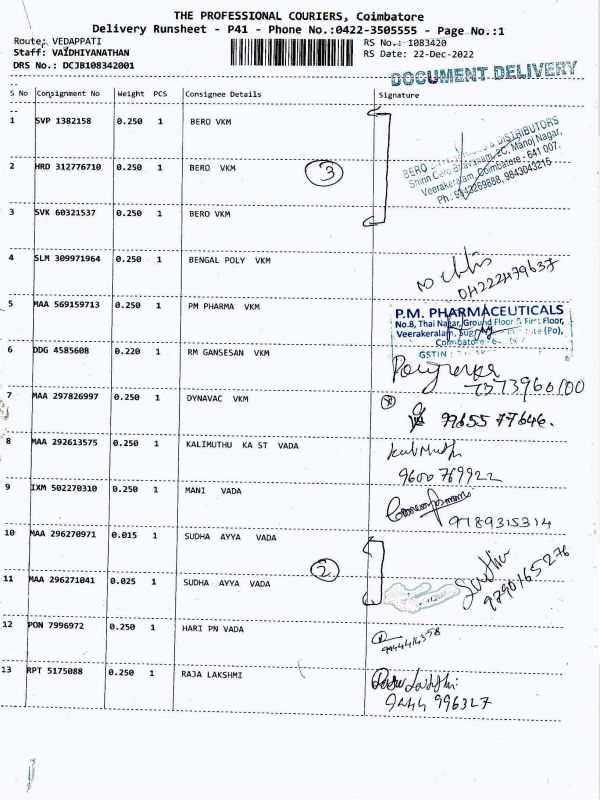 THE PROFESSIONAL COURIERS, Coimbatore
Delivery Runsheet - P41 - Phone No.:0422-3505555 - Page No.:1
Route: VEDAPPATI RS No.: 1083420
Staff: VAIDHIYANATHAN RS Date: 22-Dec-2022
DRS No.: DCJB108342001
DOCUMENT DELIVERY
S No Consignment No Weight PCS Consignee Details Signature
1 SVP 1382158 0.250 1 BERO VKM
BERO & DISTRIBUTORS
2C, Manoj Nagar,
Veerakeralam, Coimbatore - 641 007.
Ph : 9843043215
2 HRD 312776710 0.250 1 BERO VKM
3
3 SVK 60321537 0.250 1 BERO VKM
4 SLM 309971964 0.250 1 BENGAL POLY VKM
5 MAA 569159713 0.250 1 PM PHARMA VKM
P.M. PHARMACEUTICALS
No.8, Thai Nagar, Ground Floor & First Floor,
Veerakeralam,
Coimbatore
GSTIN :
6 DDG 4585608 0.220 1 RM GANSESAN VKM
7 MAA 297826997 0.250 1 DYNAVAC VKM
99655 77646.
8 MAA 292613575 0.250 1 KALIMUTHU KA ST VADA
Kalimuth
9600769922
9 IXM 502270310 0.250 1 MANI VADA
9789315314
10 MAA 296270971 0.015 1 SUDHA AYYA VADA
2
9790165276
11 MAA 296271041 0.025 1 SUDHA AYYA VADA
12 PON 7996972 0.250 1 HARI PN VADA
13 RPT 5175088 0.250 1 RAJA LAKSHMI
9444 996327